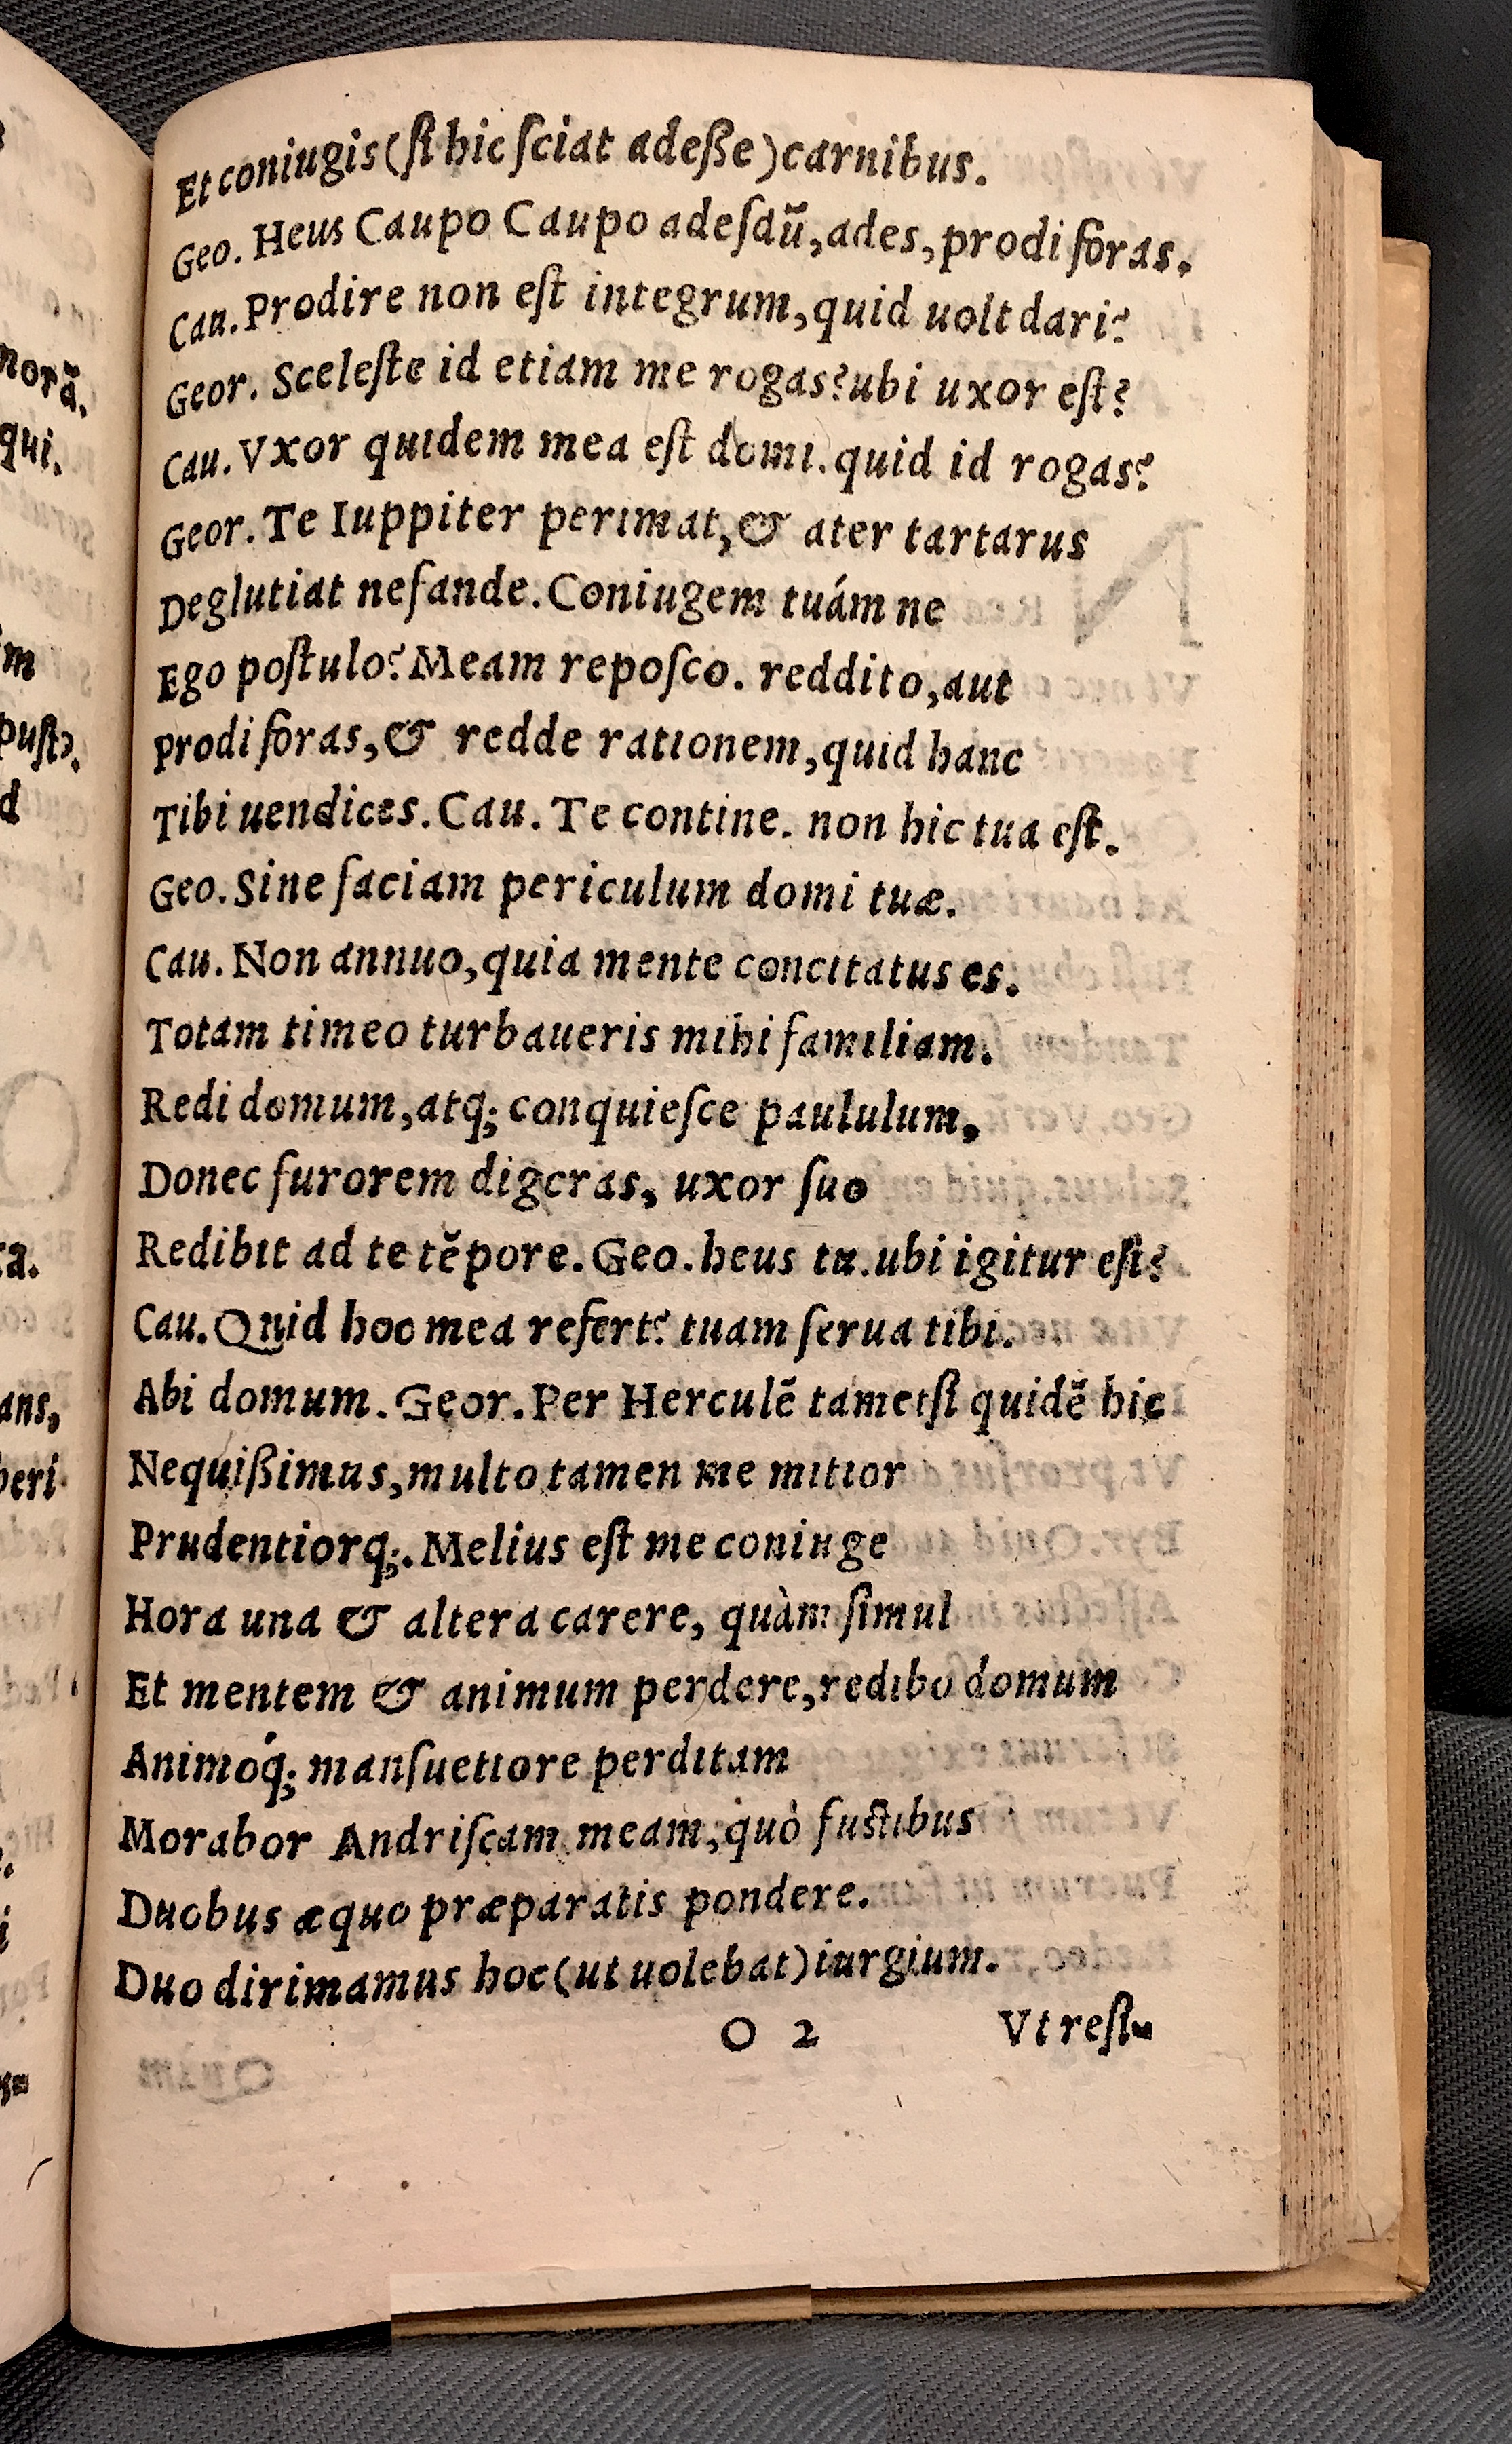 Et coniugis (ſi hic ſciat adeße) carnibus.
Geo. Heus Caupo Caupo adeſdũ, ades, prodi foras.
Cau. Prodire non eſt integrum, quid uolt dari?
Geor. Sceleſte id etiam me rogas? ubi uxor eſt?
Cau. Vxor quidem mea eſt domi. quid id rogas?
Geor. Te Iuppiter perimat, & ater tartarus
Deglutiat nefande. Coniugem tuám ne
Ego poſtulo? Meam repoſco. reddito, aut
Prodi foras, & redde rationem, quid hanc
Tibi uendices. Cau. Te contine. non hic tua eſt.
Geo. Sine faciam periculum domi tuæ.
Cau. Non annuo, quia mente concitatus es.
Totam timeo turbaueris mihi familiam.
Redi domum, atq; conquieſce paululum,
Donec furorem digeras, uxor ſuo
Redibit ad te tẽpore. Geo. heus tu. ubi igitur eſt?
Cau. Quid hoc mea refert? tuam ſerua tibi.
Abi domum. Geor. Per Herculẽ tametſi quidẽ hic
Nequißimus, multo tamen me mitior
Prudentiorq;. Melius eſt me coniuge
Hora una & altera carere, quàm ſimul
Et mentem & animum perdere, redibo domum
Animóq; manſuetiore perditam
Morabor Andriſcam meam, quò fuſtibus
Duobus æquo præparatis pondere.
Duo dirimamus hoc (ut uolebat) iurgium.
O 2 Vt reſti-
norã.
qui.
im
d
ta.
ans,